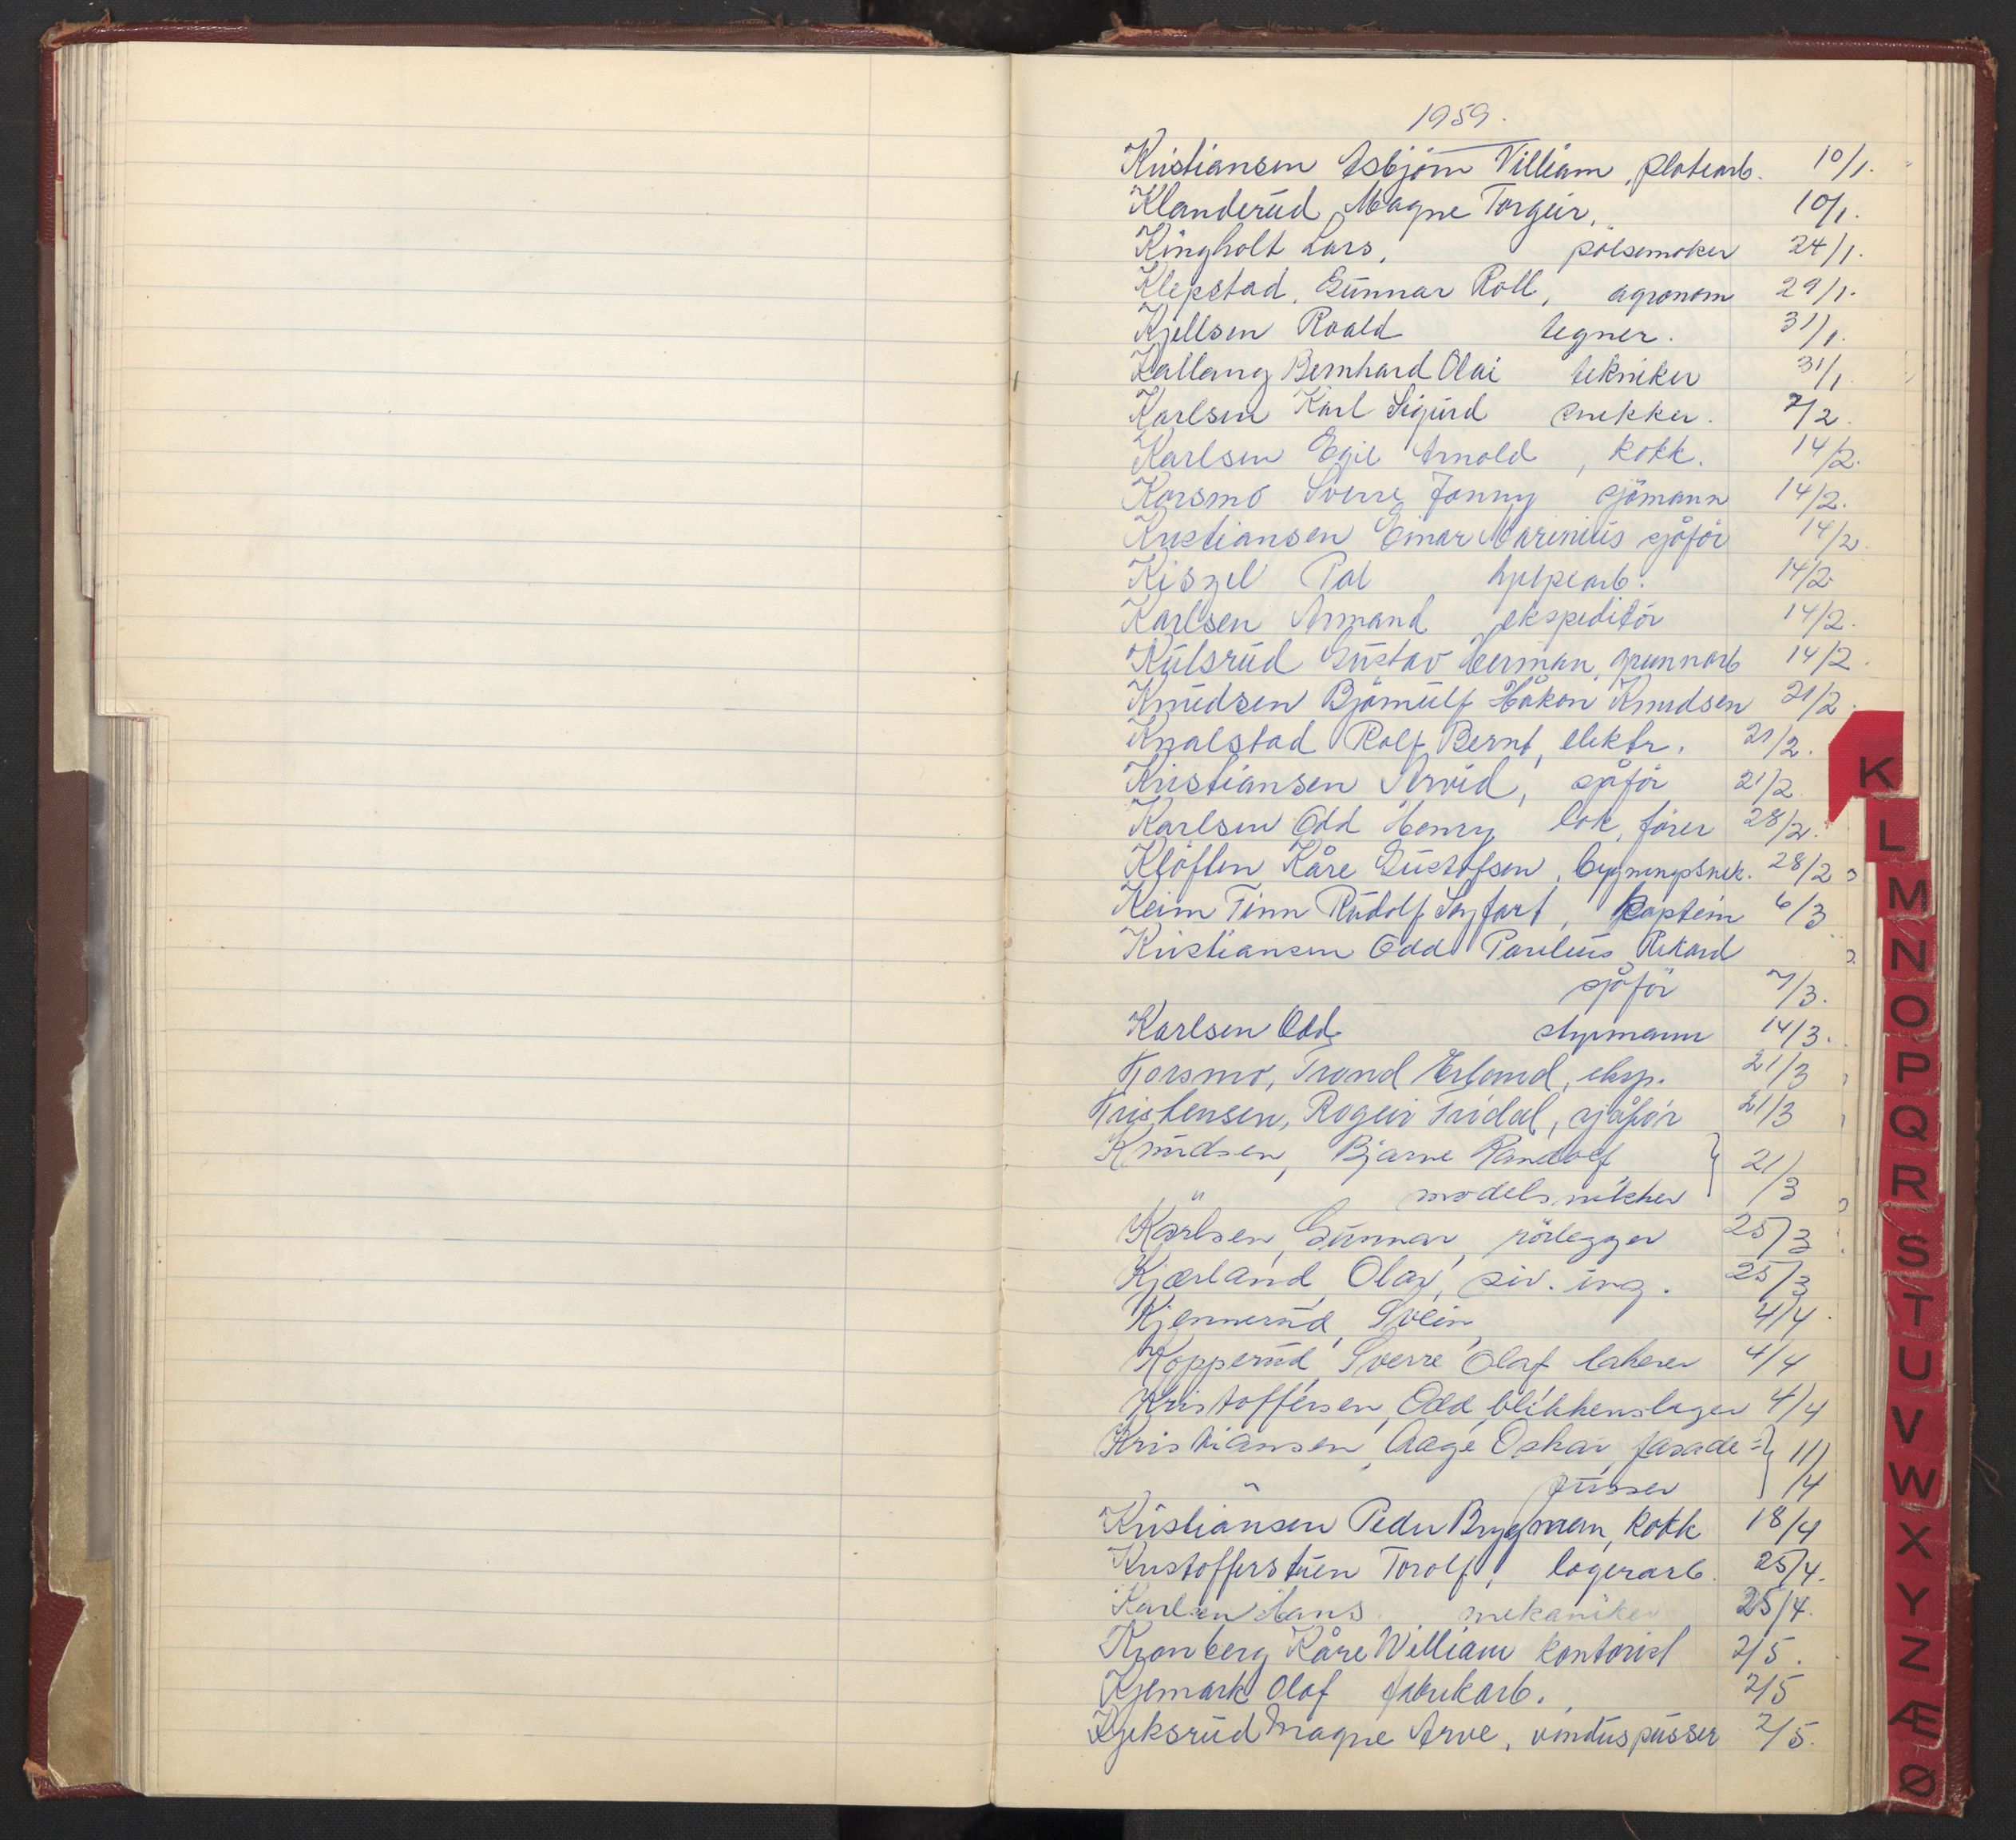 1959.
Kristiansen Asbjørn Villiam, platearb. 10/1.
Klanderud, Magne Torgeir, 10/1.
Kingholt Lars, pölsemaker 24/1.
Klepstad, Gunnar Roll, agronom 29/1.
Kjellsen Roald tegner. 31/1.
Kallang Bernhard Olai tekniker 31/1.
Karlsen Karl Sigurd snekker. 7/2.
Karlsen Egil Arnold, kokk. 14/2.
Korsmo Sverre Jonny sjömann 14/2.
Kristiansen Einar Marinius sjåför 14/2.
Kiszel Pal hjelpearb. 14/2.
Karlsen Armand ekspeditör 14/2.
Kulsrud Gustav Herman, grunnarb 14/2.
Knudsen Björnulf Håkon Knudsen 21/2.
Knalstad Rolf Bernt, elektr. 21/2.
Kristiansen Arvid, sjåför 21/2.
Karlsen Odd Henry lok. förer 28/2.
Klöften Kåre Gustafsen, bygningssnek. 28/2
Keim Finn Rudolf Seyfart, kaptein 6/3
Kristiansen Odd Paulius Rikard
sjåför 7/3.
Karlsen Odd styrmann 14/3.
Korsmo, Trond Erland, eksp. 21/3
Kristensen, Rogeir Fridal, sjåför 21/3
Knudsen, Bjarne Randolf 21/3
modelsnikker
Karlsen, Gunnar, rörlegger 25/3
Kjærland, Olav, siv. ing. 25/3
Kjennerud, Svein 4/4.
Kopperud, Sverre Olaf lakerer 4/4
Kristoffersen, Odd, blikkenslager 4/4
Kristiansen, Aage Oskar, fasade= 11/4
pusser
Kristiansen Peder Brygman, kokk 18/4
Kristofferstuen Torolf, lagerarb. 25/4.
Karlsen Hans mekaniker 25/4.
Kronberg Kåre William kontorist 2/5.
Kjemark Olaf fabrikarb. 2/5
Kjeksrud Magne Arve, vinduspusser 2/5.
K
L
M
N
O
P
Q
R
S
T
U
V
W
X
Y
Z
Æ
Ø